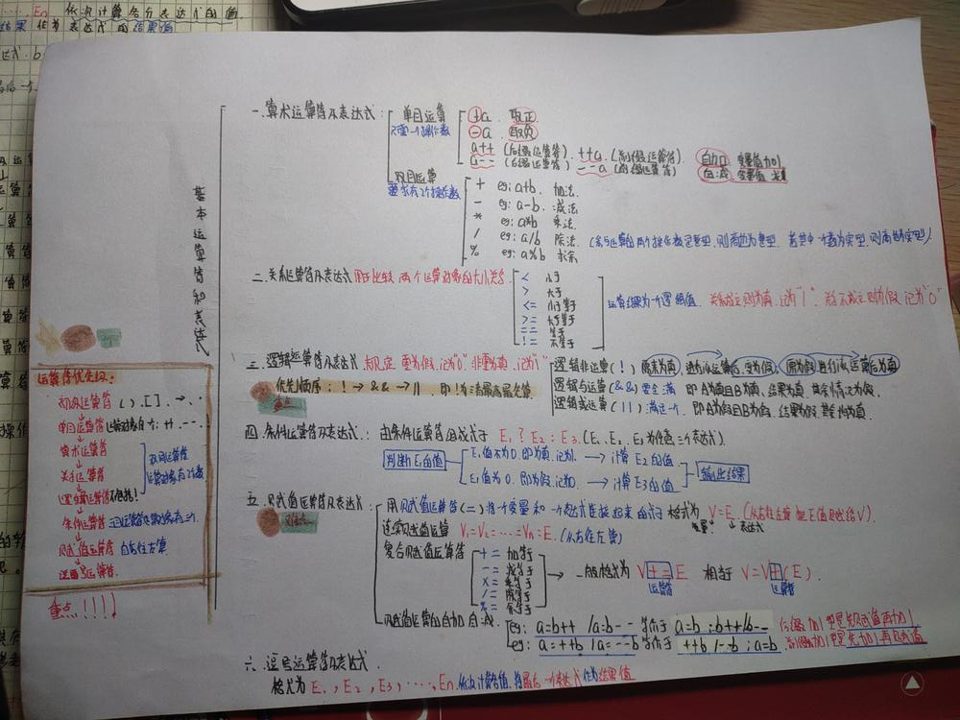 En 依次计算各分表达式的值.
结果 作为表达式的结果值
基本运算符和表达式
一. 算术运算符及表达式:
单目运算
只需一个操作数
+a 取正
-a 取负
a++ (后缀运算符). ++a. (前缀运算符). 自加 变量值加1
a-- (后缀运算符) --a (前缀运算符) 自减 变量值减1
双目运算
要求有2个操作数
+ eg: a+b. 加法.
- eg: a-b. 减法
* eg: a*b 乘法.
/ eg: a/b 除法.
% eg: a%b 求余
二. 关系运算符及表达式 用于比较两个运算对象的大小关系
< 小于
> 大于
<= 小于等于
>= 大于等于
== 等于
!= 不等于
运算结果为一个逻辑值. 关系成立则为真,记为"1". 关系不成立则为假,记为"0"
三. 逻辑运算符及表达式. 规定 零为假,记为"0" 非零为真,记为"1"
优先顺序: ! → && → || 即!为清最高最先算.
重点
逻辑非运算(!)
逻辑与运算(&&) 要全满 即A为真且B为真,结果为真.其余情况为假.
逻辑或运算(||) 满足一个.
四. 条件运算符及表达式.: 由条件运算符组成式子 E1 ? E2 : E3. (E1、E2、E3为任意三个表达式).
判断E1的值
E1值不为0.即为真.记为1. → 计算E2的值
E1值为0.即为假,记为0. → 计算E3的值
输出结果
五. 赋值运算符及表达式:
难点
用赋值运算符(=)将一个变量和一个表达式连接起来的式子 格式为 V=E. (从右往左读 把E值赋给V).
变量 表达式
连续赋值运算 V1=V2=……=Vn=E. (从右往左算)
复合赋值运算符
+= 加等于
-= 减等于
×= 乘等于
/= 除等于
%= 余等于
→ 一般格式为 V+=E 相当于 V=V+(E).
运算符 运算符
赋值运算的自加自减
eg: a=b++ /a=b-- 等价于 a=b;b++/b-- 后缀加1要是先赋值再加1
eg: a=++b /a=--b 等价于 ++b/--b;a=b 前缀加1要是先加1再赋值
六. 逗号运算符及表达式.
格式为 E1, E2, E3, ……, En. 依次计算各值, 将最后一个表达式作为结果值
运算符优先级:
初级运算符 ( ).[ ]. →. .
单目运算符
算术运算符
关系运算符
逻辑运算符 不包括!
双目运算符
运算对象有2个数
条件运算符
赋值运算符 自右往左算.
逗号运算符.
重点!!!!